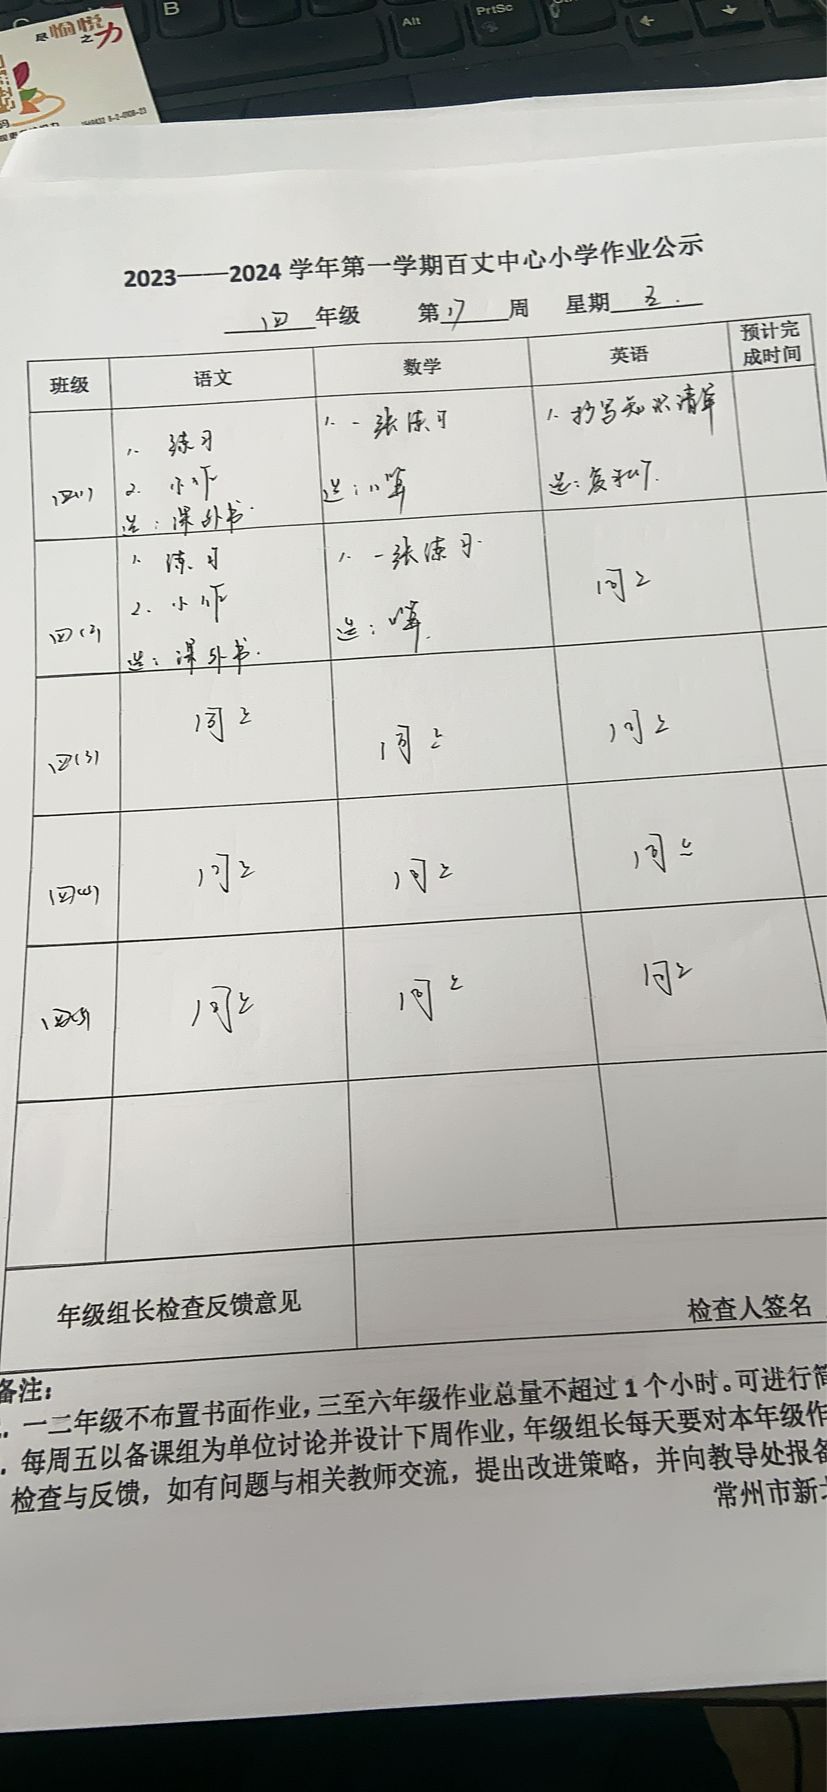 B
Alt
PrtSc
尽愉悦之力
2023——2024 学年第一学期百丈中心小学作业公示
四 年级 第 17 周 星期 五.
班级 语文 数学 英语 预计完成时间
四(1)
1. 练习
2. 小作
选：课外书.
1. 一张练习
选：口算
1. 抄写知识清单
选：复习U7.
四(2)
1. 练习
2. 小作
选：课外书.
1. 一张练习.
选：口算.
同上
四(3) 同上 同上 同上
四(4) 同上 同上 同上
四(5) 同上 同上 同上
年级组长检查反馈意见
检查人签名
备注：
. 一二年级不布置书面作业，三至六年级作业总量不超过 1 个小时。可进行简
. 每周五以备课组为单位讨论并设计下周作业，年级组长每天要对本年级作
检查与反馈，如有问题与相关教师交流，提出改进策略，并向教导处报备
常州市新北